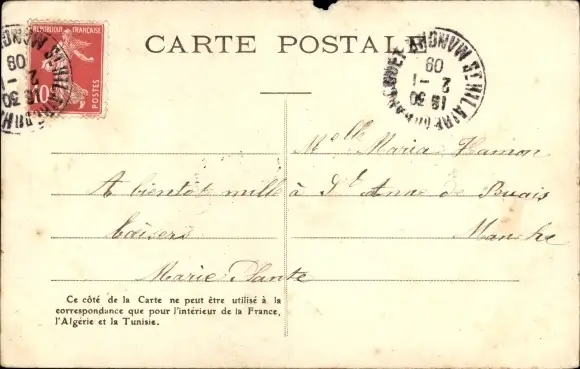 RÉPUBLIQUE FRANÇAISE
10
POSTES
CARTE POSTALE
ST HILAIRE DU HARCOUET MANCHE
18 30
2 - 1
09
A bientôt mille
baisers
Marie Plante
Melle Maria Hamon
à St Anne de Buais
Manche
Ce côté de la Carte ne peut être utilisé à la
correspondance que pour l'intérieur de la France,
l'Algérie et la Tunisie.